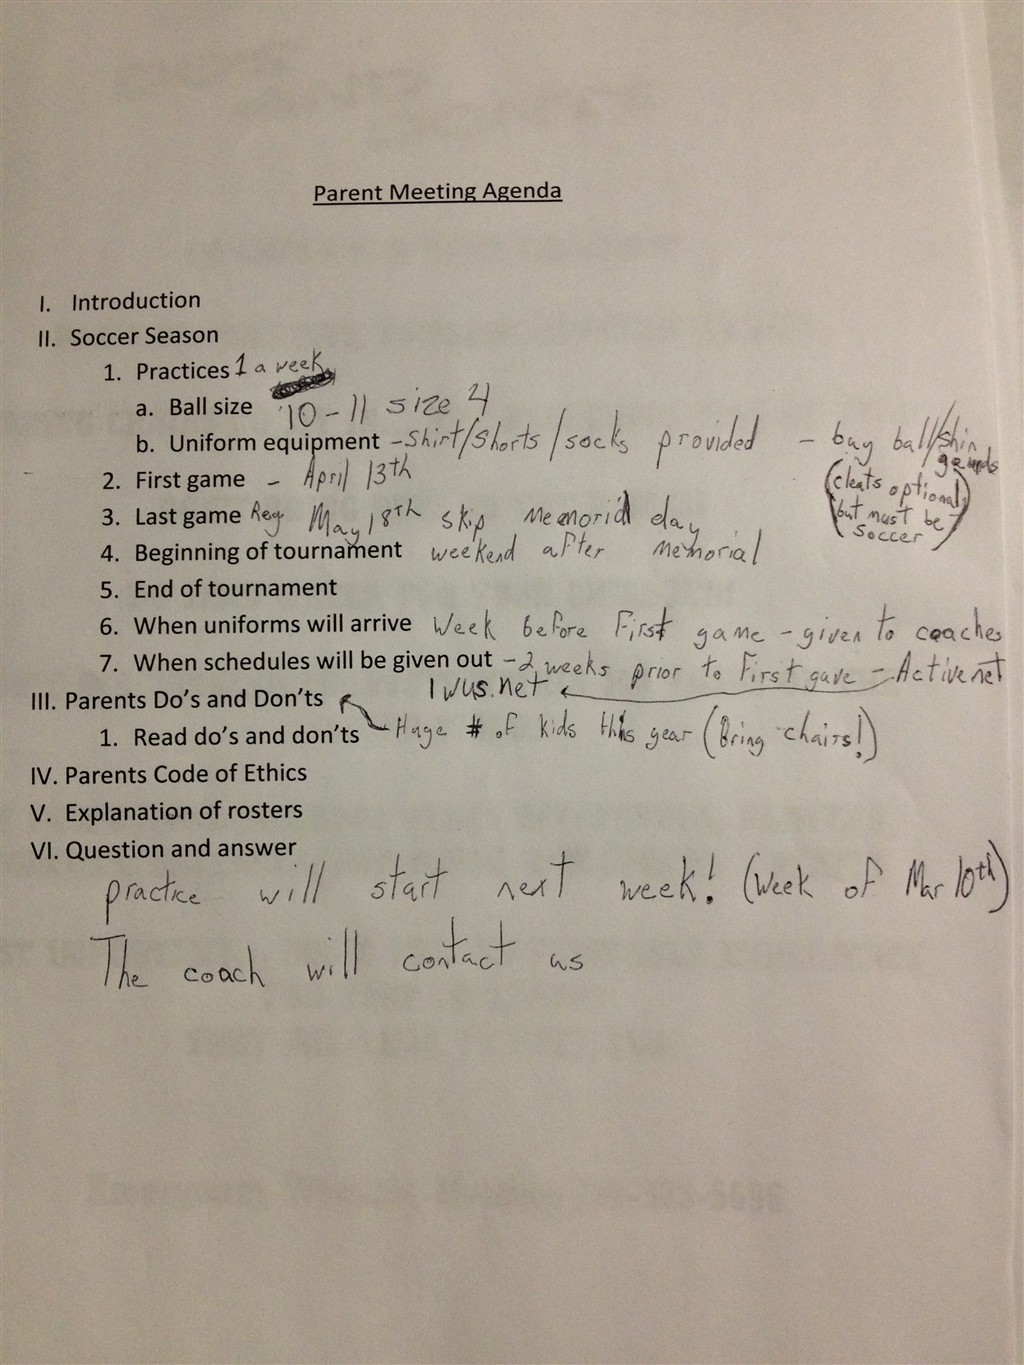 Parent Meeting Agenda
I. Introduction
II. Soccer Season
1. Practices 1 a week
a. Ball size '10-11 size 4
b. Uniform equipment -shirt/shorts/socks provided - buy ball/shin
guards
(cleats optional,
but must be
soccer)
2. First game - April 13th
3. Last game Reg May 18th skip Memorial day
4. Beginning of tournament weekend after Memorial
5. End of tournament
6. When uniforms will arrive Week before First game - given to coaches
7. When schedules will be given out -2 weeks prior to First game - Active net
lwus.net
III. Parents Do's and Don'ts
1. Read do's and don'ts - Huge # of kids this year (Bring chairs!)
IV. Parents Code of Ethics
V. Explanation of rosters
VI. Question and answer
practice will start next week! (Week of Mar 10th)
The coach will contact us